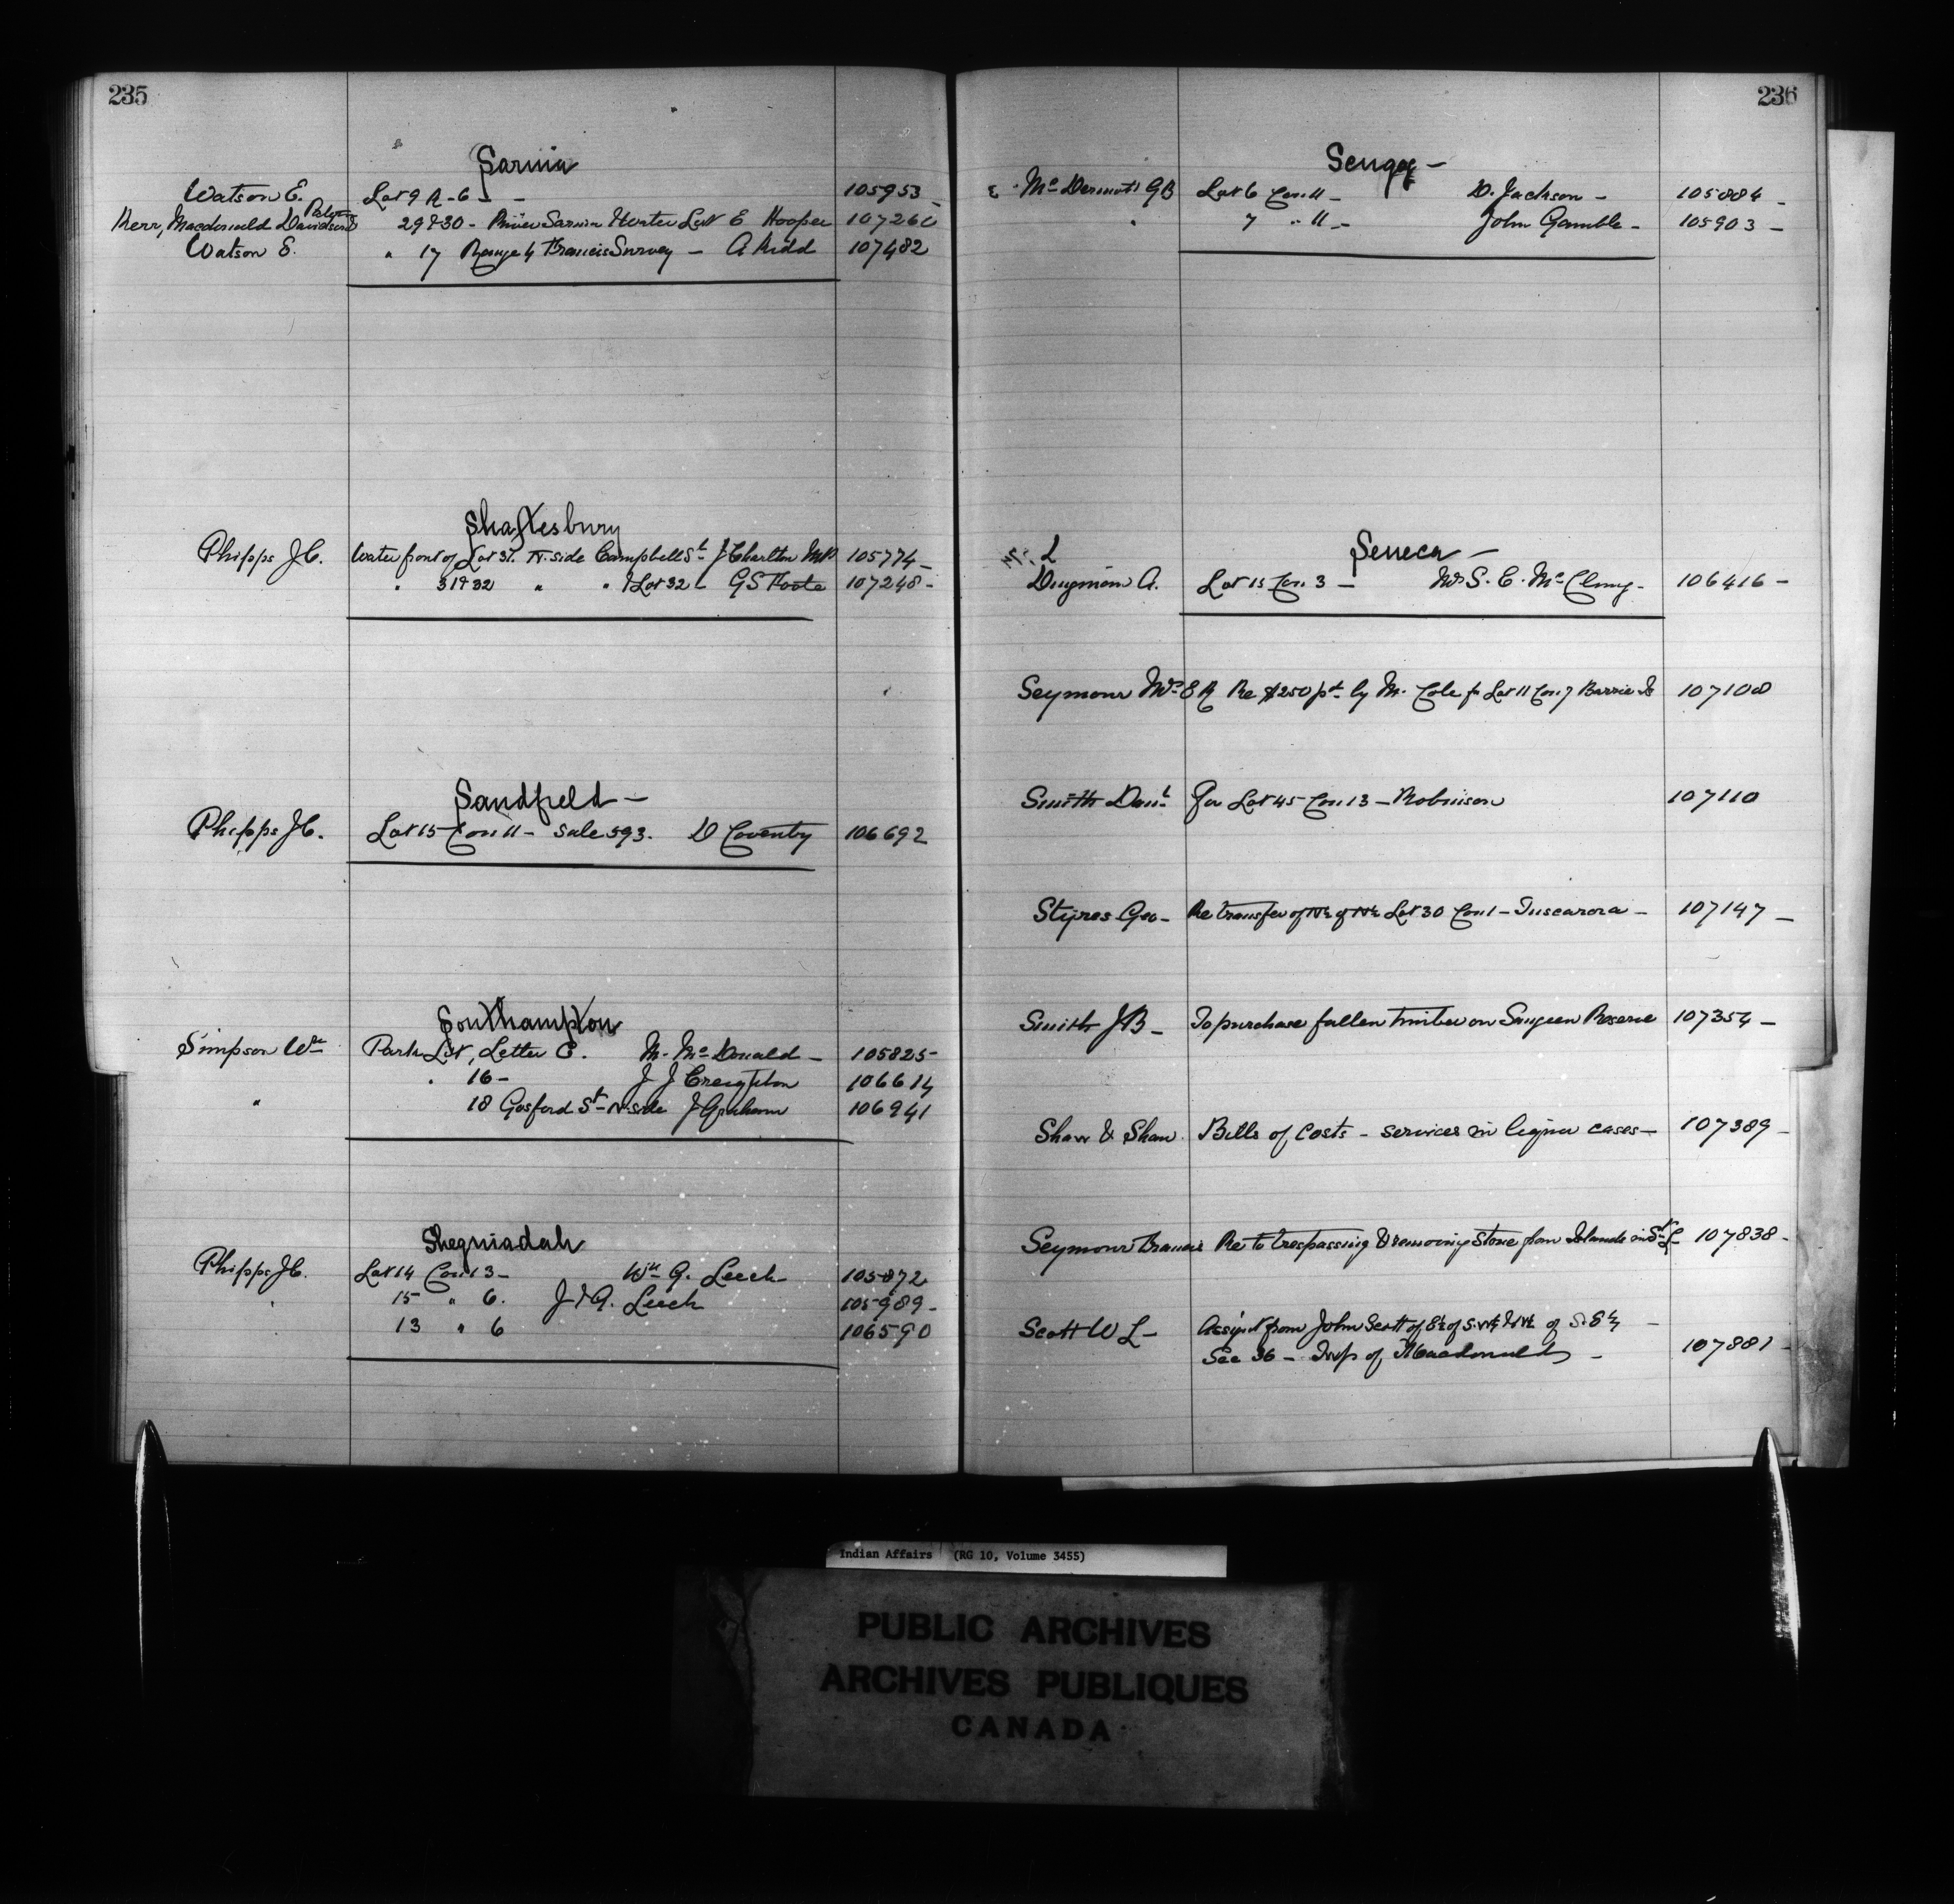 235
Sarnia
Watson E. Lot 9 R-6 - - 105953 -
Kerr, Macdonald Davidson & Paterson 29 & 30 - River Sarnia Water Lot E Hooper 107260
Watson E. " 17 Range 4 Francis Survey - A Kidd 107482
Shaftesbury
Phipps J.C. Water front of Lot 31. N. side Campbell St J Charlton MP 105774 -
" 31 & 32 " " & Lot 32 - G S Foote 107248 -
Sandfield -
Phipps J.C. Lot 15 Con 11 - Sale 593. D Coventry 106692
Southampton
Simpson Wm Park Lot, Letter C. M. McDonald - 105825 -
" 16 - J J Creighton 106614
" 18 Gosford St - N side J Graham 106941
Sheguiadah
Phipps J.C. Lot 14 Con 13 - Wm G. Leech 105872
" 15 " 6. J & G. Leech 105989 -
13 " 6 106590
236
Seugog -
McDermott G B Lot 6 Con 11 - D. Jackson - 105884 -
" 7 " 11 - John Gamble - 105903 -
Seneca -
Dingman A. Lot 15 Con 3 - Mrs S. C. McClung - 106416 -
Seymour Mrs E R Re $250 pd by M. Cole for Lot 11 Con 7 Barrie Is 107108
Smith Danl For Lot 45 Con 13 - Robinson 107110
Styres Geo - Re transfer of N½ of N½ Lot 30 Con 1 - Tuscarora - 107147 -
Smith J B - To purchase fallen timber on Saugeen Reserve 107354 -
Shaw & Shaw Bills of Costs - services in liquor cases - 107389 -
Seymour Francis Re to trespassing & removing Stone from Islands in St L - 107838 -
Scott W L - Assigt from John Scott of E½ of S.W¼ & W½ of S.E¼ -
Sec 36 - Twp of Macdonald - 107881 -
Indian Affairs (RG 10, Volume 3455)
PUBLIC ARCHIVES
ARCHIVES PUBLIQUES
CANADA